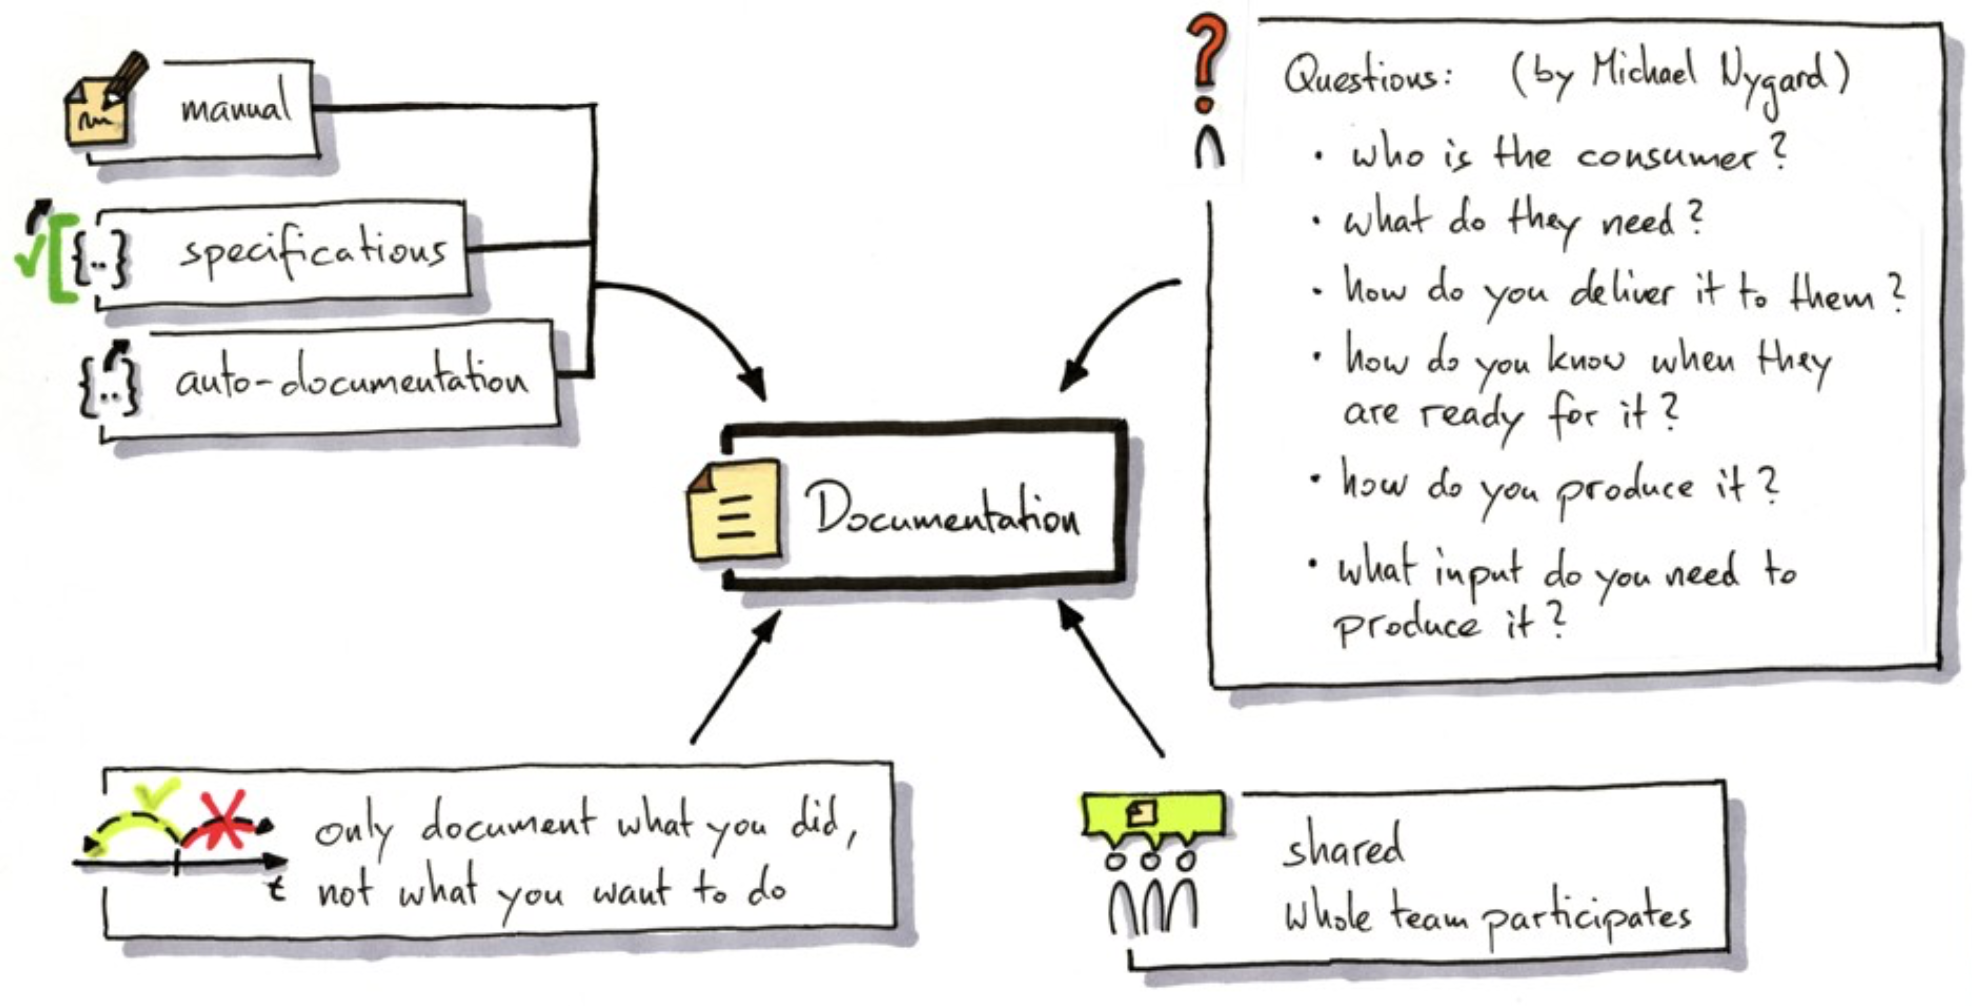 manual
specifications
auto-documentation
Documentation
Questions: (by Michael Nygard)
• who is the consumer?
• what do they need?
• how do you deliver it to them?
• how do you know when they
are ready for it?
• how do you produce it?
• what input do you need to
produce it?
only document what you did,
t
not what you want to do
shared
whole team participates